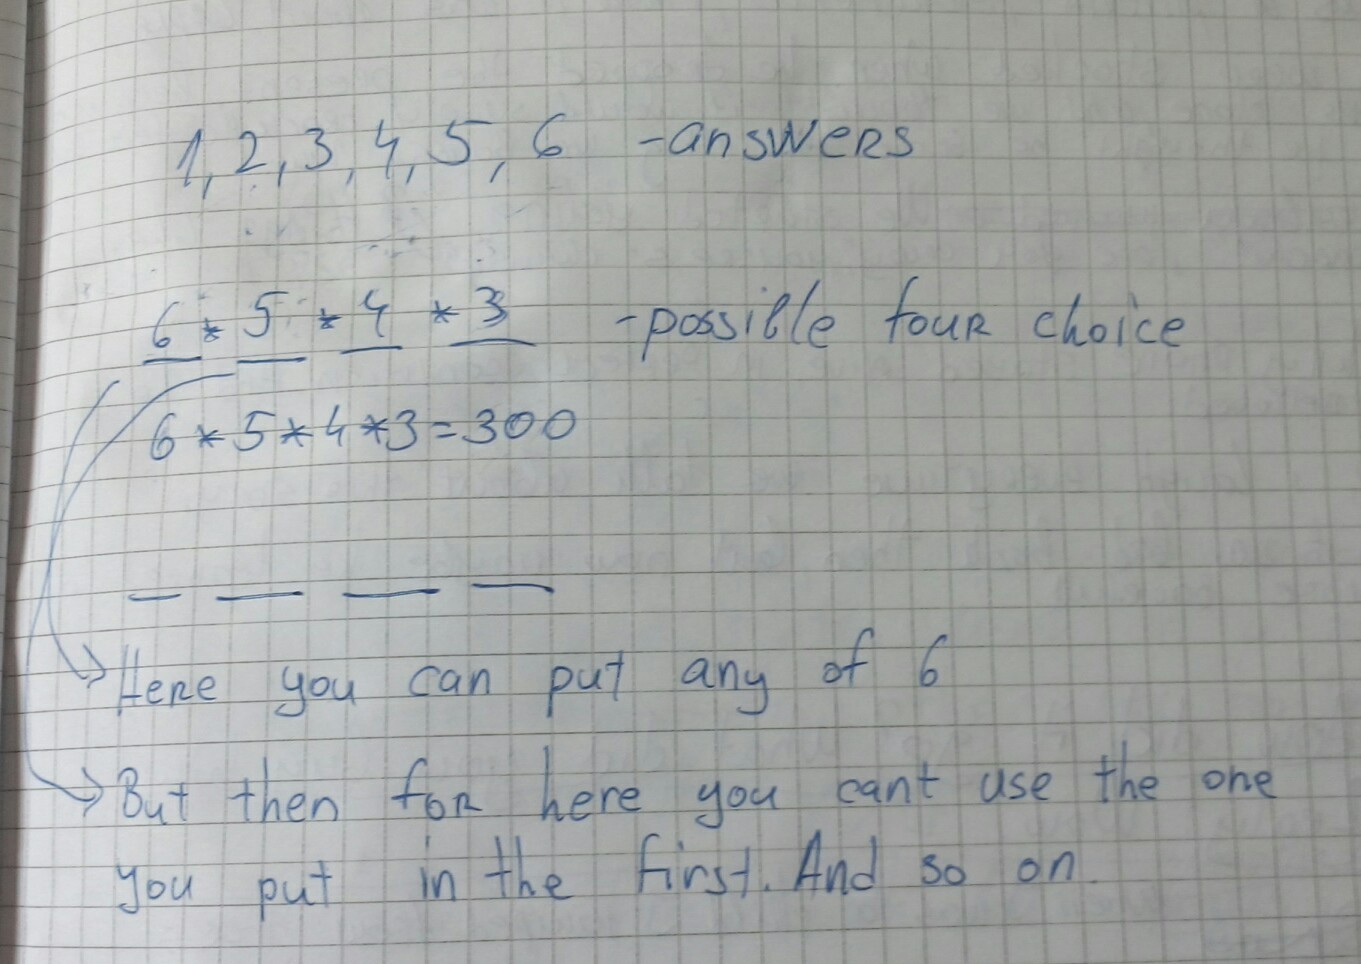 1, 2, 3, 4, 5, 6 - answers
6 * 5 * 4 * 3 - possible four choice
6 * 5 * 4 * 3 = 300
Here you can put any of 6
But then for here you cant use the one
you put in the first. And so on.